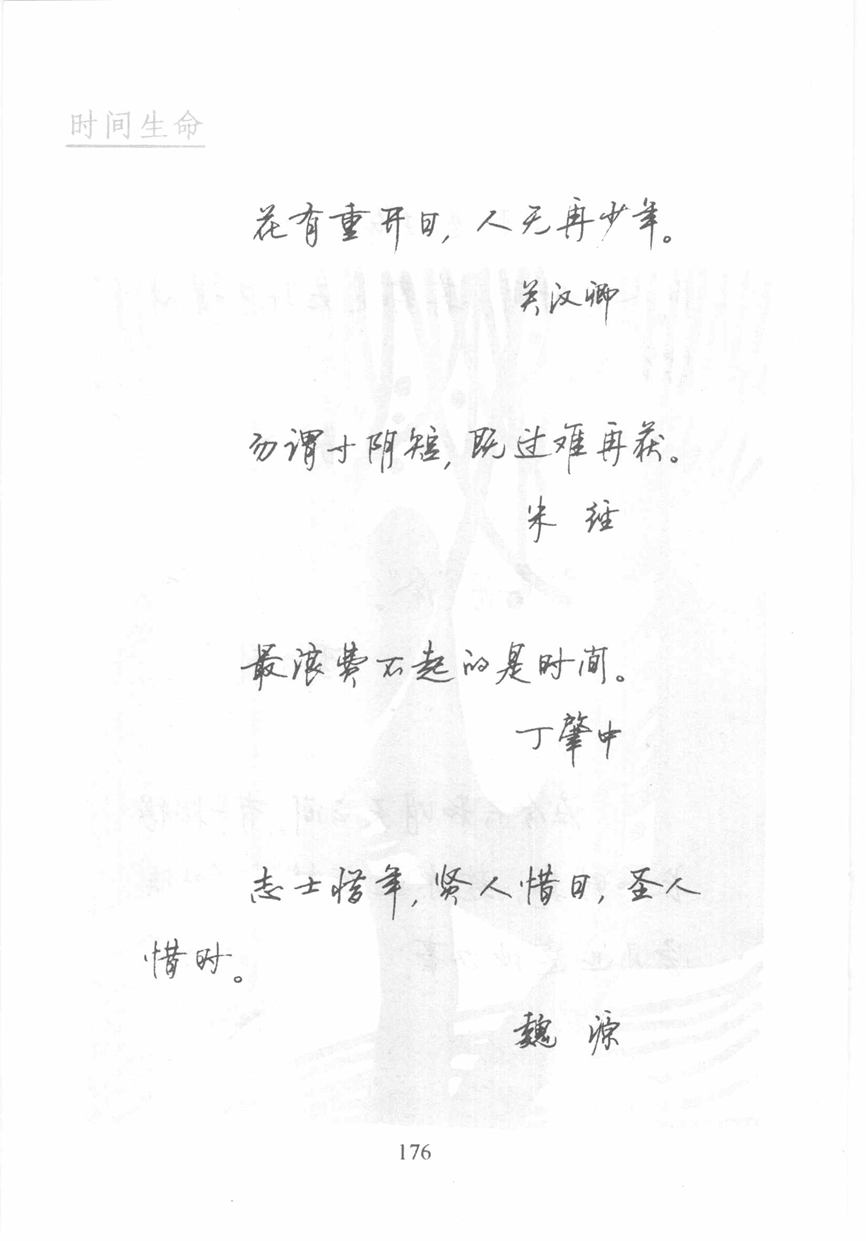 时间生命
花有重开日，人无再少年。
关汉卿
勿谓寸阴短，既过难再获。
朱 经
最浪费不起的是时间。
丁肇中
志士惜年，贤人惜日，圣人
惜时。
魏 源
176